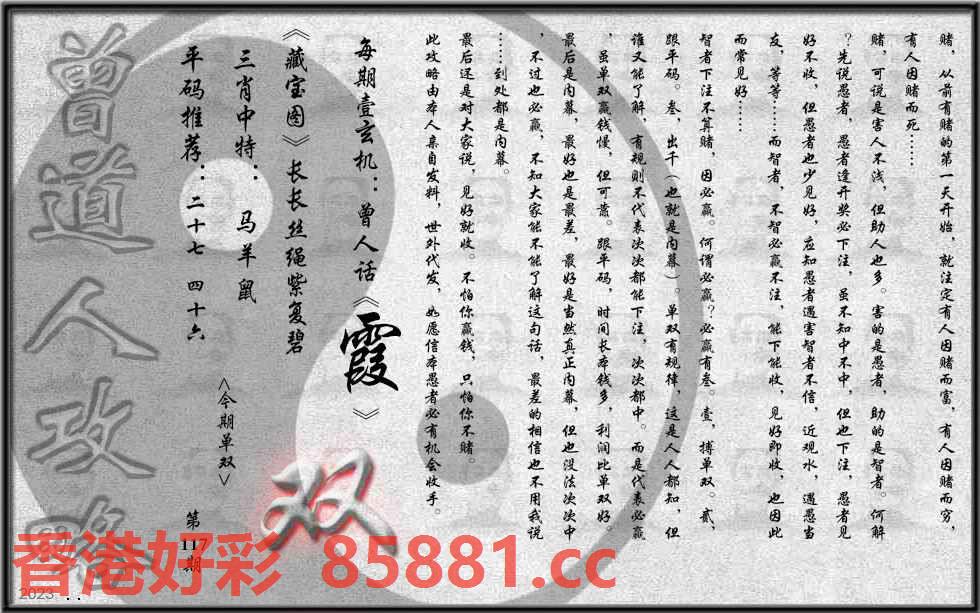 赌，从前有赌的第一天开始，就注定有人因赌而富，有人因赌而穷，
有人因赌而死……
赌，可说是害人不浅，但助人也多。害的是愚者，助的是智者。何解
？先说愚者，愚者逢开奖必下注，虽不知中不中，但也下注，愚者见
好不收，但愚者也少见好，应知愚者遇害智者不信，近观水，遇愚当
友，等等……而智者，不智必赢不注，能下能收，见好即收，也因此
而常见好……
智者下注不算赌，因必赢。何谓必赢？必赢有叁。壹，搏单双。贰，
跟平码。叁，出千（也就是内幕）。单双有规律，这是人人都知，但
谁又能了解，有规则不代表次次都能下注，次次都中。而是代表必赢
，虽单双赢钱慢，但可靠。跟平码，时间长本钱多，利润比单双好。
最后是内幕，最好也是最差，最好是当然真正内幕，但也没法次次中
，不过也必赢，不知大家能不能了解这句话，最差的相信也不用我说
……到处都是内幕。
最后还是对大家说，见好就收。不怕你赢钱，只怕你不赌。
此攻略由本人亲自发料，世外代发，如愿信本愚者必有机会收手。
每期壹玄机：曾人话《霞》
《藏宝图》长长丝绳紫复碧
三肖中特：马羊鼠
<今期单双>
双
平码推荐：二十七 四十六
第
117
期
曾道人攻略
香港好彩 85881.cc
2023